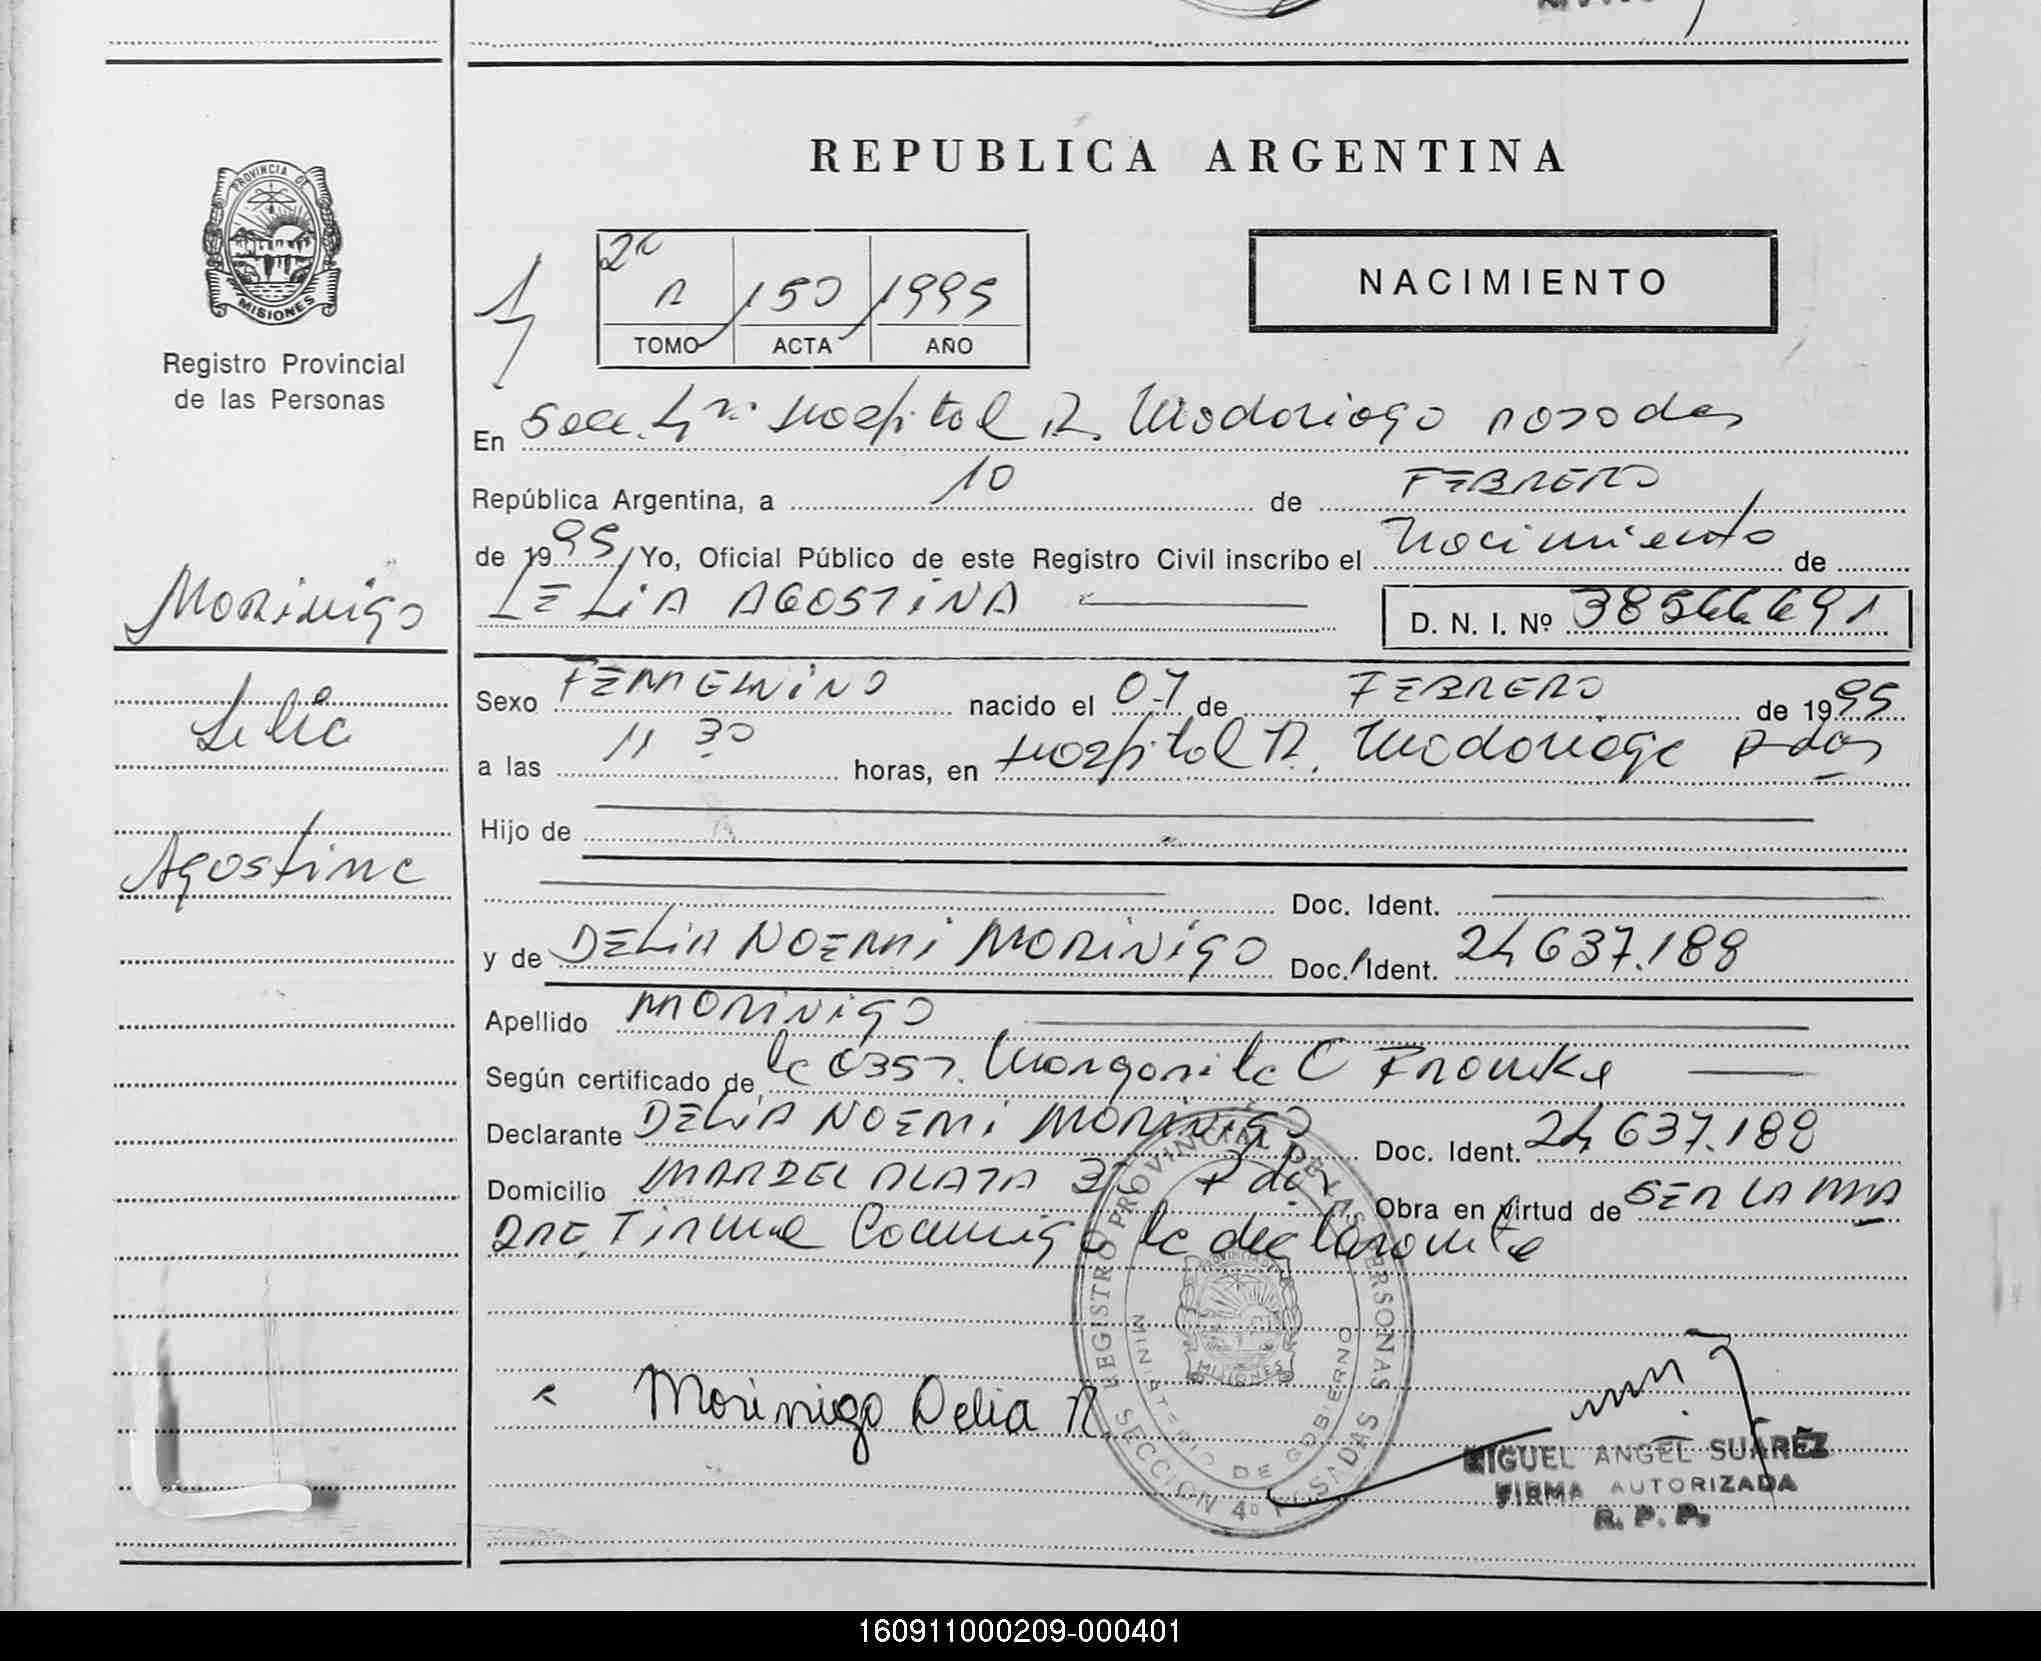 REPUBLICA ARGENTINA
PROVINCIA DE
MISIONES
Registro Provincial
de las Personas
NACIMIENTO
150 1995
TOMO ACTA AÑO
En Secc. 4ta Hospital R. Madariaga Posadas
República Argentina, a 10 de FEBRERO
de 1995 Yo, Oficial Público de este Registro Civil inscribo el Nacimiento de
LELIA AGOSTINA D. N. I. Nº 38566691
Morinigo
Lelia
Agostina
Sexo FEMENINO nacido el 07 de FEBRERO de 1995
a las 11 30 horas, en Hospital R. Madariaga Pdas
Hijo de
Doc. Ident.
y de DELIA NOEMI MORINIGO Doc. Ident. 24637.188
Apellido MORINIGO
Según certificado de la Obst. Margarita C
Declarante DELIA NOEMI MORINIGO Doc. Ident. 24637.188
Domicilio MAR DEL PLATA Pdas Obra en virtud de SER LA MA
DRE, Firma Conmigo la declarante
Morinigo Delia N
REGISTRO PROVINCIAL DE LAS PERSONAS
PROVINCIA DE
MISIONES
MINISTERIO DE GOBIERNO
SECCION 4º POSADAS
MIGUEL ANGEL SUAREZ
FIRMA AUTORIZADA
R. P. P.
160911000209-000401